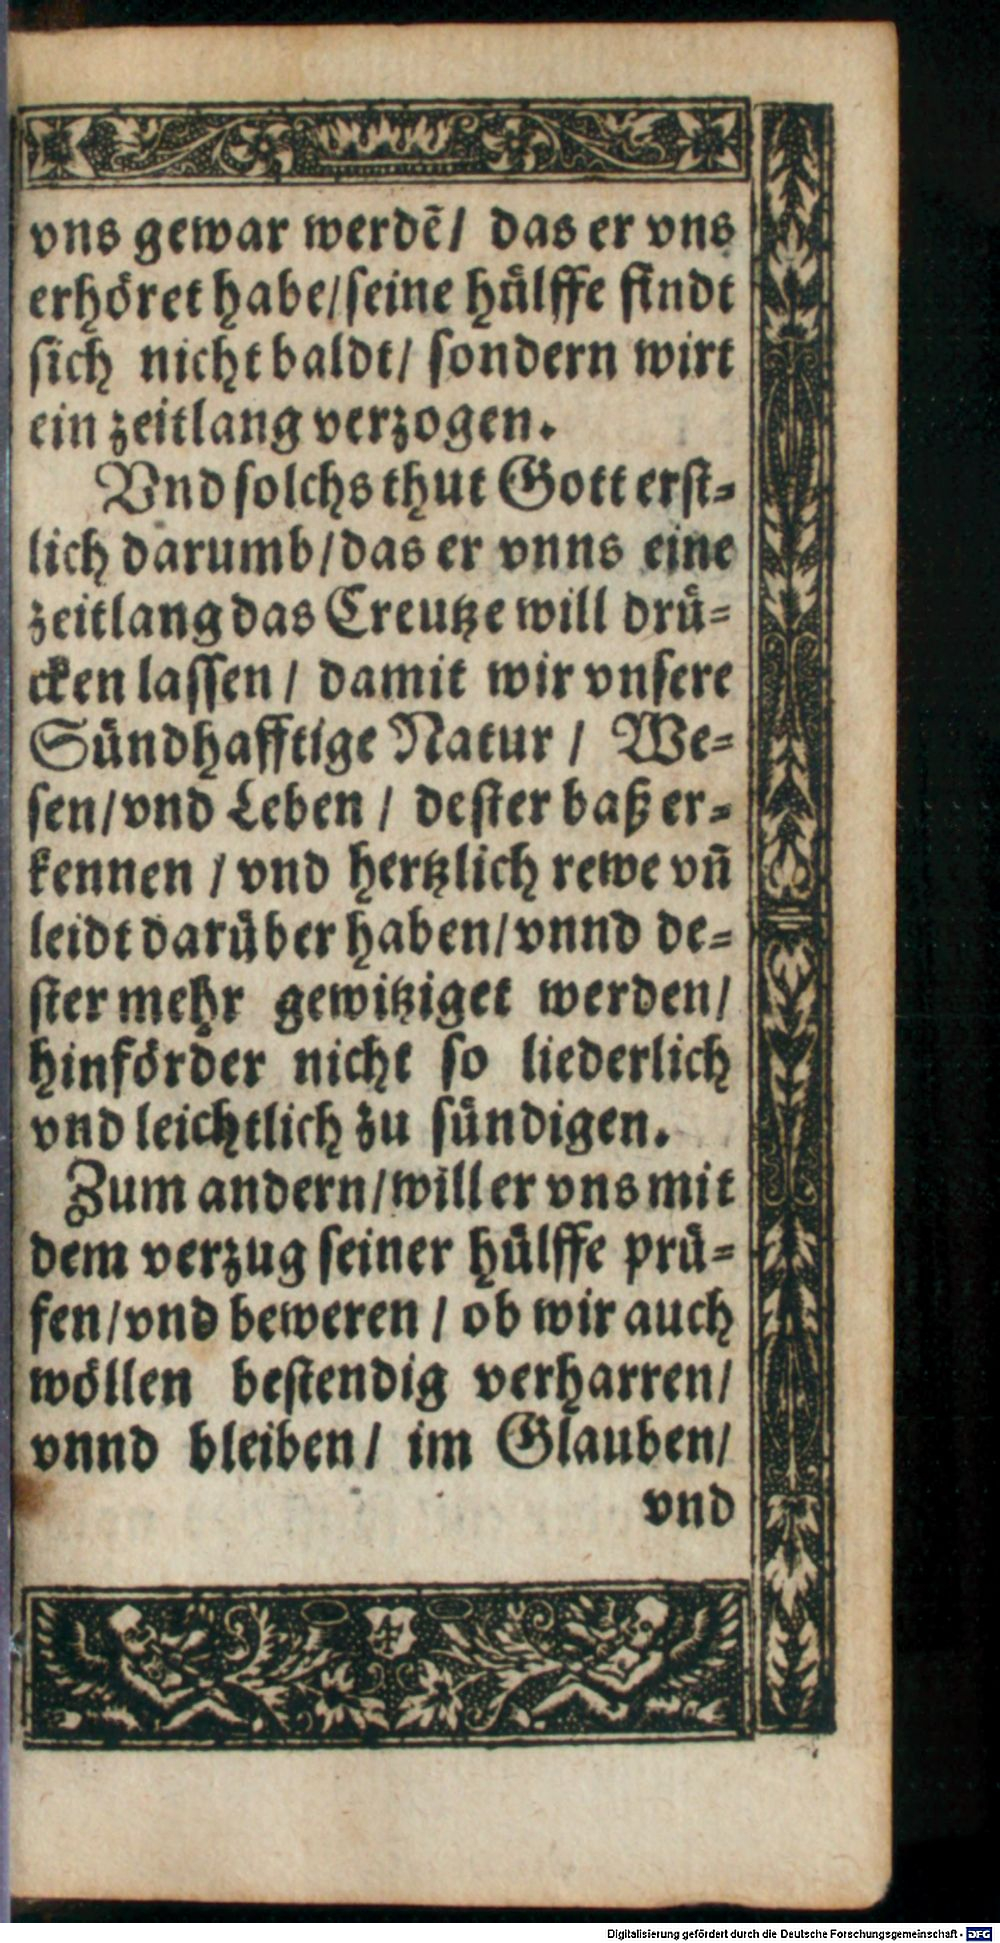 vns gewar werdẽ/ das er vns
erhöret habe/seine hülffe findt
sich nicht baldt/ sondern wirt
ein zeitlang verzogen.
Vnd solchs thut Gott erst⸗
lich darumb/das er vnns eine
zeitlang das Creutze will drü⸗
cken lassen / damit wir vnsere
Sündhafftige Natur / We⸗
sen/vnd Leben / dester baß er⸗
kennen / vnd hertzlich rewe vñ
leidt darüber haben/vnnd de⸗
ster mehr gewitziget werden/
hinförder nicht so liederlich
vnd leichtlich zu sündigen.
Zum andern/will er vns mit
dem verzug seiner hülffe prü⸗
fen/vnd beweren / ob wir auch
wöllen bestendig verharren/
vnnd bleiben/ im Glauben/
vnd
Digitalisierung gefördert durch die Deutsche Forschungsgemeinschaft - DFG